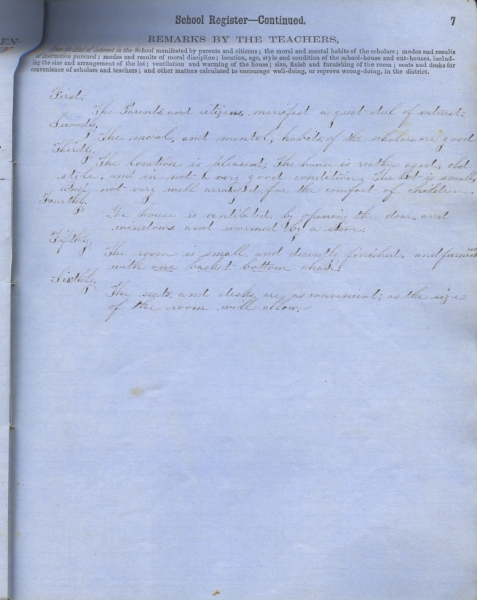 School Register—Continued. 7
REMARKS BY THE TEACHERS,
interest in the School manifested by parents and citizens; the moral and mental habits of the scholars; modes and results
of instruction pursued; modes and results of moral discipline; location, age, style and condition of the school-house and out-houses, includ-
ing the size and arrangement of the lot; ventilation and warming of the house; size, finish and furnishing of the room; seats and desks for
convenience of scholars and teachers; and other matters calculated to encourage well-doing, or reprove wrong-doing, in the district.
EN-
First.
The Parents and citizens, manifest a great deal of interest.
Secondly.
The moral, and mental, habits of the scholars are good
Thirdly.
The location is pleasant. The house is rather aged, old
style, and in not a very good condition. The lot is small,
and not very well arranged for the comfort of children.
Fourthly.
The house is ventilated, by opening the door, and
windows and warmed by a stove.
Fifthly.
The room is small, and decently finished, and furnished
with one basket bottom chair.
Sixthly.
The seats, and desks, are as convenient, as the size
of the room will allow.